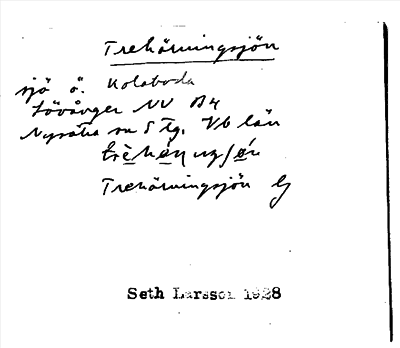 Trehörningsjön
sjö ö. Kolaboda
Lövånger NV B4
Nysätra sn S Tg. Vb län
Trehörningsjön
Seth Larsson 1928